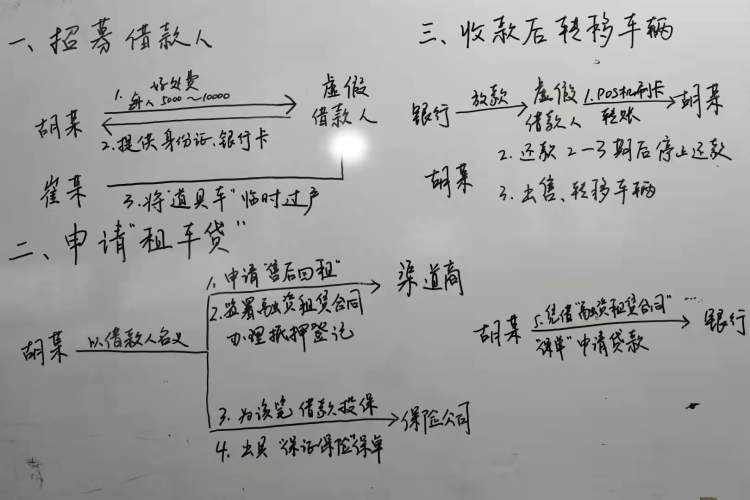 一、招募借款人
1. 好处费
每人5000～10000
胡某
虚假
借款人
2.提供身份证、银行卡
崔某
3.将"道具车"临时过户
二、申请"租车贷"
胡某
以借款人名义
1.申请"售后回租"
渠道商
2.签署融资租赁合同
办理抵押登记
3.为该笔借款投保
保险公司
4.出具"保证保险"保单
胡某
5.凭借"融资租赁合同"…
银行
"保单"申请贷款
三、收款后转移车辆
银行
放款
虚假
借款人
1.POS机刷卡
转账
胡某
胡某
2.还款2-3期后停止还款
3.出售、转移车辆